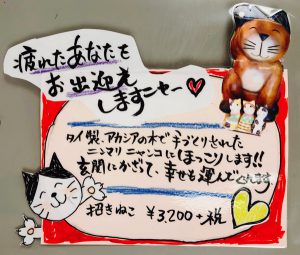 疲れたあなたを
お出迎え
しますニャー
タイ製、アカシアの木で手づくりされた
ニンマリニャンコにほっこりします!!
玄関にかざって、幸せも運んでくれます
招きねこ ¥3,200+税